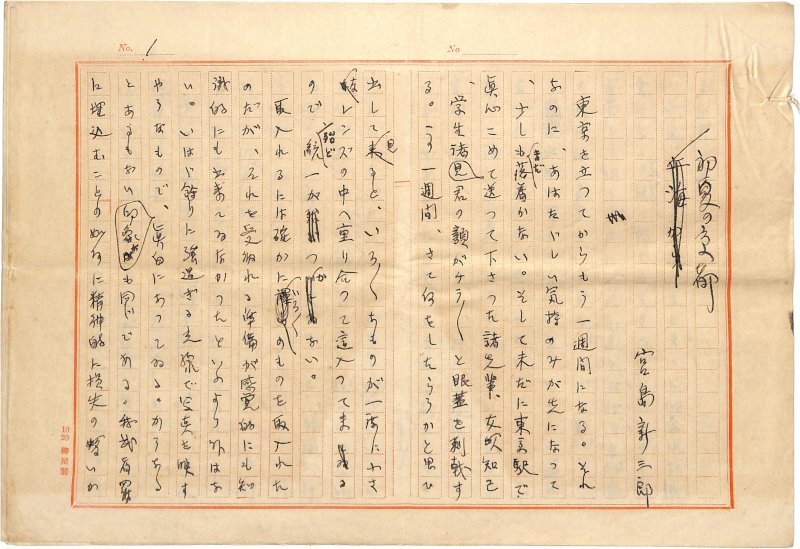 No. 1
No
初夏の京都
宮島新三郎
東京を立つてからもう一週間になる。それ
なのに、あはたゞしい気持のみが先になつて
、少しもまだ落着かない。そして未だに東京駅で
真心こめて送つて下さつた諸先輩、友人知己
、学生諸君の顔がケラ〳〵と眼蓋を刺戟す
る。この一週間、さて何をしたらうかと思ひ
出して見ると、いろ〳〵なものが一度に小さ
レンズの中へ重り合つて這入つてま
ので殆ど統一がつかない。
取入れるには確かにいろ〳〵のものを取入れた
のだが、それを受取れる準備が感覚的にも知
識的にも出来てゐなかつたといふより外はな
い。いはゞ餘りに強過ぎる光線で写真を映す
やうなもので、真白になつてゐる。かうある
とあるもない印象も同じである。
に埋込むことの妙に精神的に損失の
10 20 柳屋製